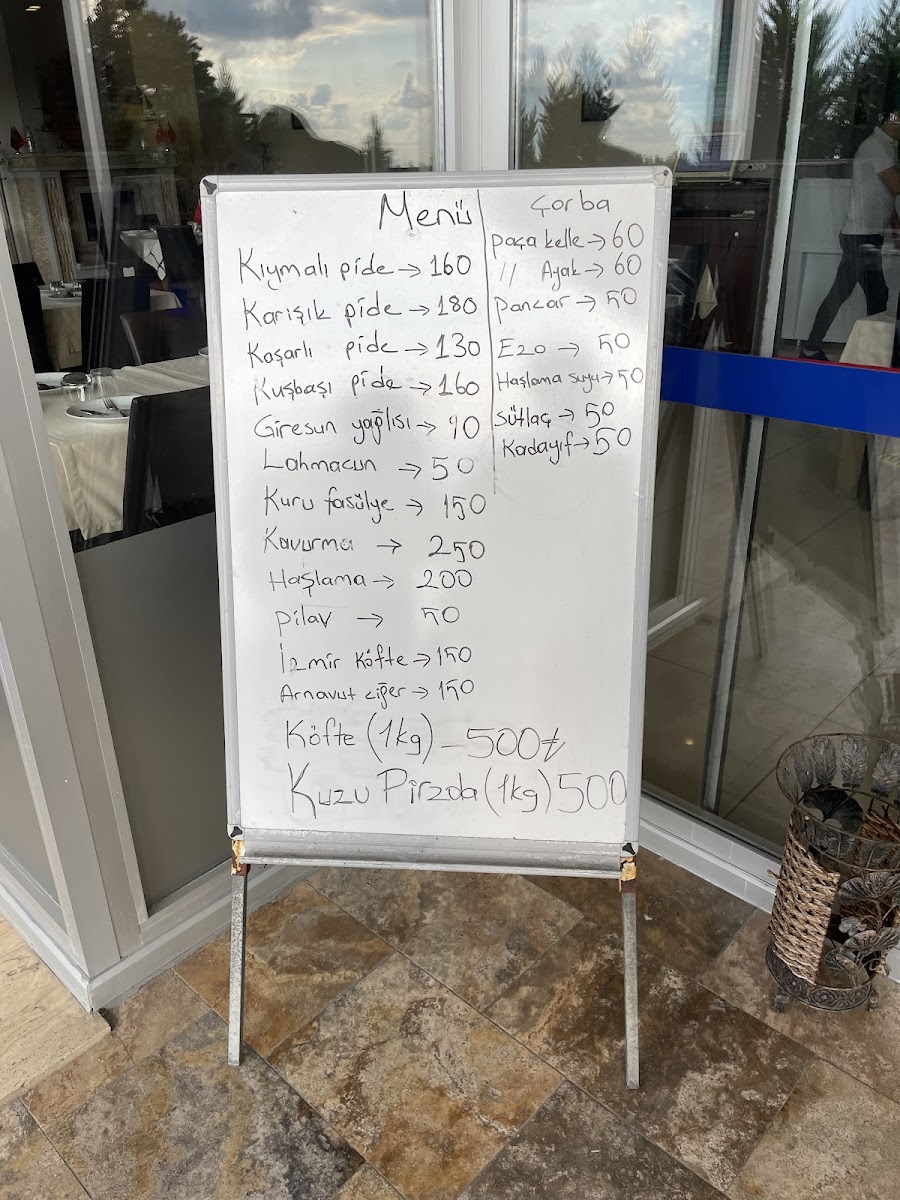 Menü
Kıymalı pide → 160
Karışık pide → 180
Kaşarlı pide → 130
Kuşbaşı pide → 160
Giresun yağlısı → 90
Lahmacun → 50
Kuru fasülye → 150
Kavurma → 250
Haşlama → 200
pilav → 50
İzmir köfte → 150
Arnavut ciğer → 150
Köfte (1kg) - 500₺
Kuzu Pirzola (1kg) 500
Çorba
paça kelle → 60
// Ayak → 60
pancar → 50
Ezo → 50
Haşlama suyu → 50
sütlaç → 50
Kadayıf → 50